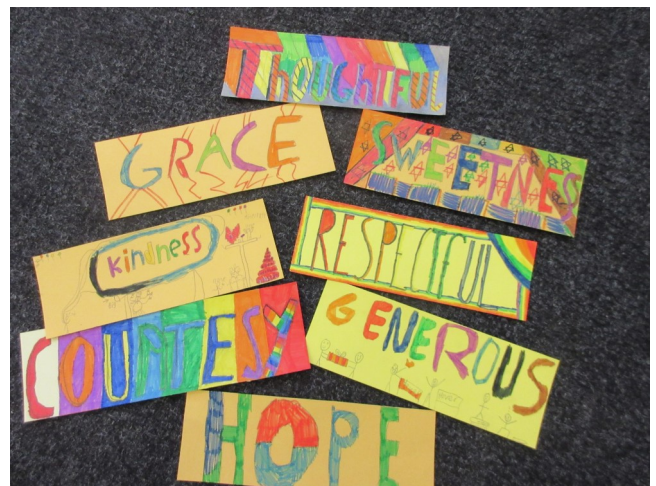 THOUGHTFUL
GRACE
SWEETNESS
kindness
RESPECTFUL
COURTESY
GENEROUS
HOPE